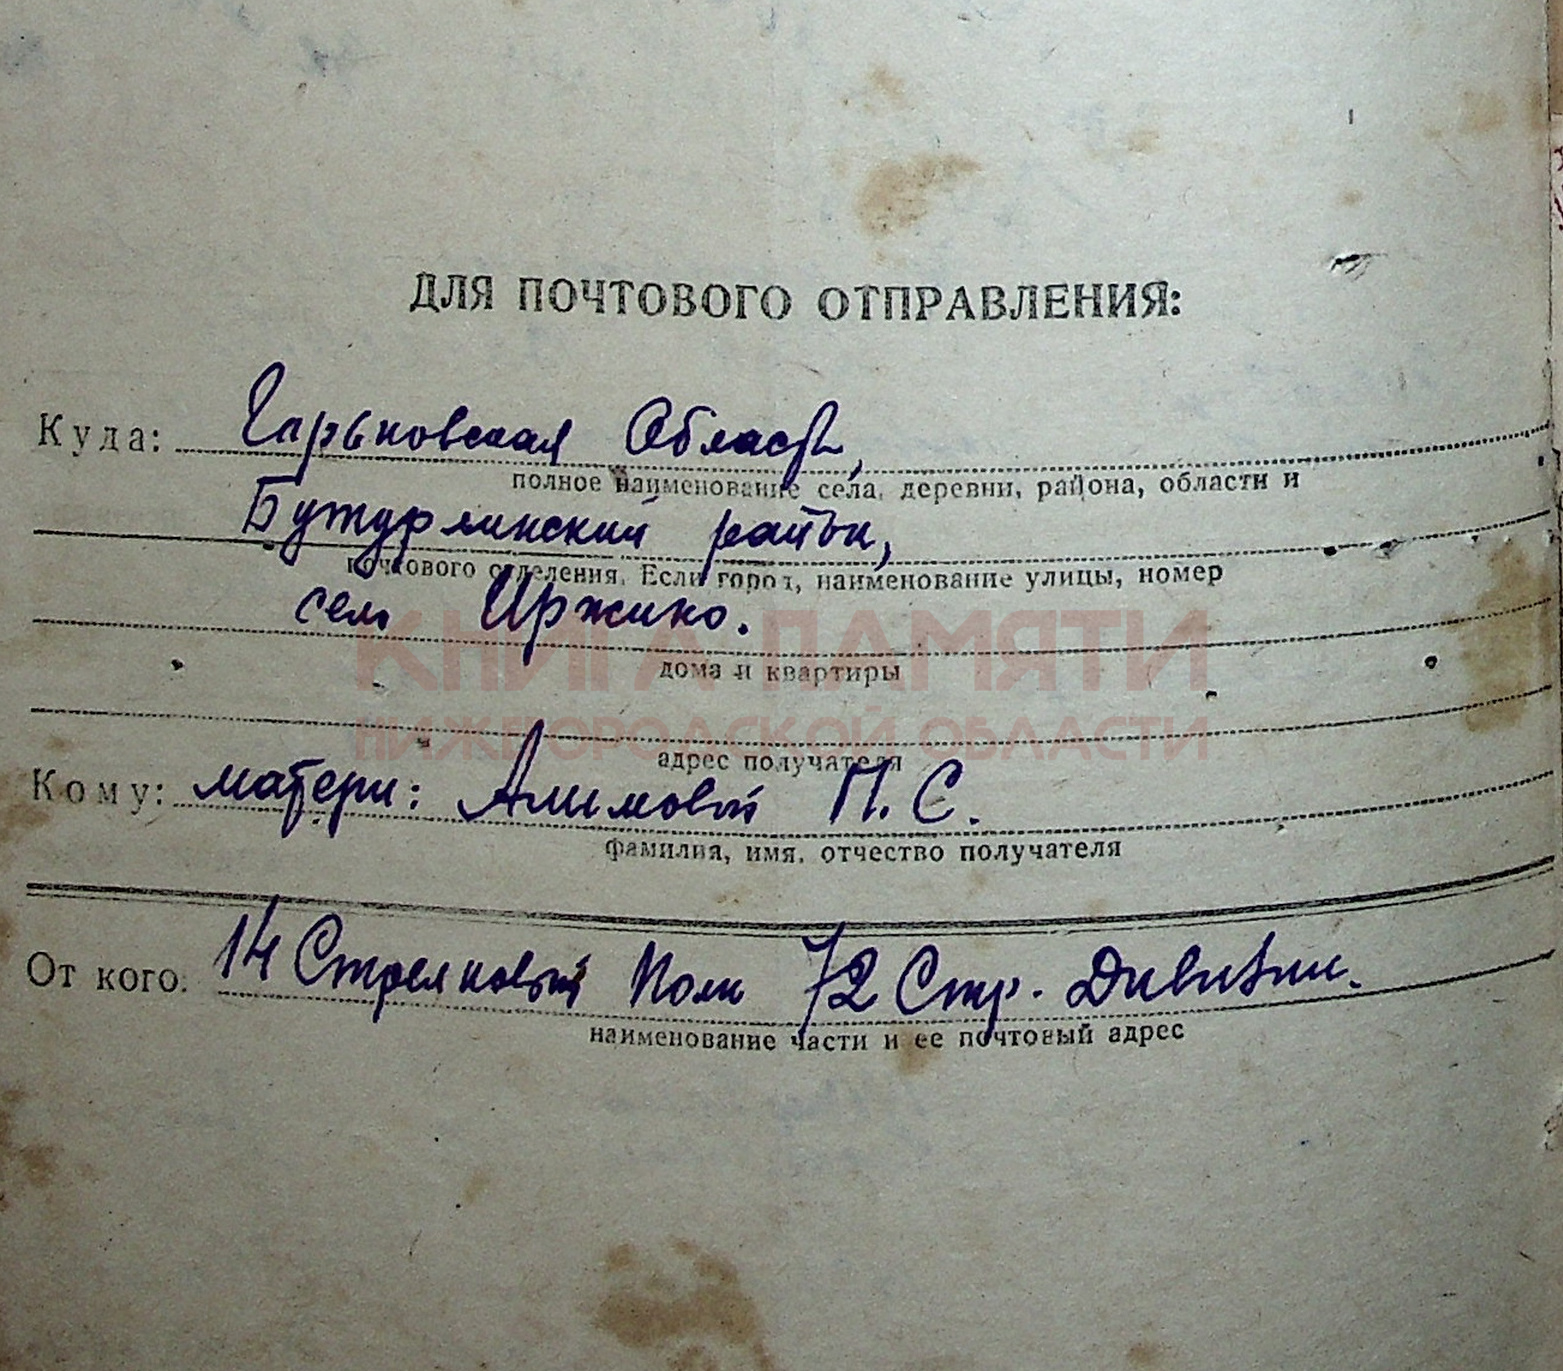 ДЛЯ ПОЧТОВОГО ОТПРАВЛЕНИЯ:
Куда: Гарьковская Область,
полное наименование села, деревни, района, области и
Бутурлинский район,
почтового отделения. Если город, наименование улицы, номер
село Иржино.
КНИГА ПАМЯТИ
дома и квартиры
НИЖЕГОРОДСКОЙ ОБЛАСТИ
адрес получателя
Кому: матери: Алимовой П. С.
фамилия, имя, отчество получателя
От кого: 14 Стрелковый Полк 72 Стр. Дивизии.
наименование части и ее почтовый адрес